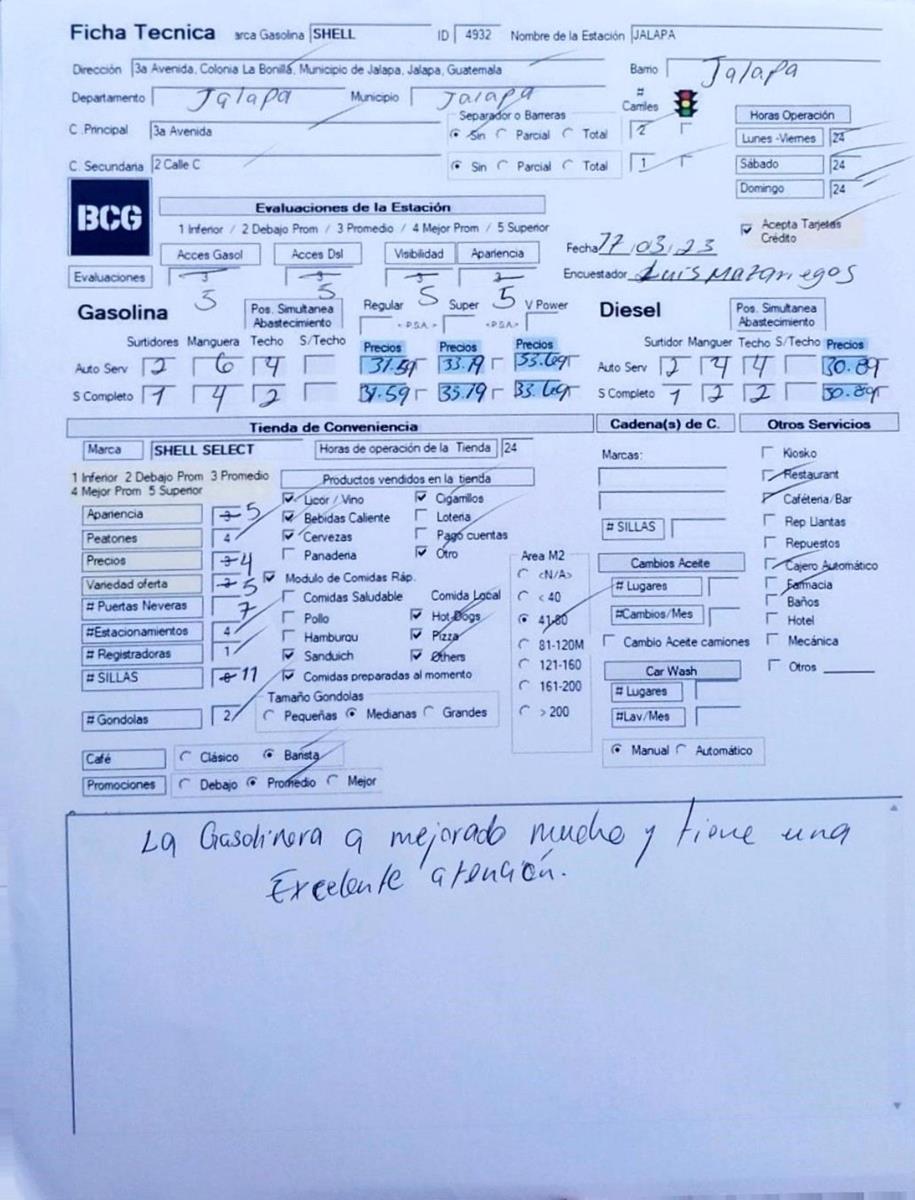 Ficha Tecnica arca Gasolina SHELL ID 4932 Nombre de la Estación JALAPA
Dirección 3a Avenida, Colonia La Bonilla, Municipio de Jalapa, Jalapa, Guatemala Barrio Jalapa
Departamento Jalapa Municipio Jalapa # Carriles
Separador o Barreras Horas Operación
C. Principal 3a Avenida Sin Parcial Total 2 Lunes -Viernes 24
C. Secundaria 2 Calle C Sin Parcial Total 1 Sábado 24
Domingo 24
BCG Evaluaciones de la Estación
1 Inferior / 2 Debajo Prom / 3 Promedio / 4 Mejor Prom / 5 Superior
Acepta Tarjetas Crédito
Acces Gasol Acces Dsl Visibilidad Apariencia Fecha 03,23
Evaluaciones 3 5 5 5 Encuestador Luis Mazariegos
Gasolina Pos. Simultanea Abastecimiento Regular Super V Power Diesel Pos. Simultanea Abastecimiento
<P.S.A.> <P.S.A.>
Surtidores Manguera Techo S/Techo Precios Precios Precios Surtidor Manguer Techo S/Techo Precios
Auto Serv 2 6 4 31.59 33.19 33.69 Auto Serv 2 4 4 30.89
S Completo 1 4 2 31.59 33.19 33.69 S Completo 1 2 2 30.89
Tienda de Conveniencia Cadena(s) de C. Otros Servicios
Marca SHELL SELECT Horas de operación de la Tienda 24 Marcas: Kiosko
1 Inferior 2 Debajo Prom 3 Promedio Productos vendidos en la tienda Restaurant
4 Mejor Prom 5 Superior Licor / Vino Cigarrillos Caféteria/Bar
Apariencia 5 Bebidas Caliente Loteria # SILLAS Rep Llantas
Peatones 4 Cervezas Pago cuentas Repuestos
Precios 4 Panaderia Otro Area M2 Cambios Aceite Cajero Automático
Variedad oferta 5 Modulo de Comidas Ráp. <N/A> # Lugares Farmacia
# Puertas Neveras 7 Comidas Saludable Comida Local < 40 Baños
#Estacionamientos 4 Pollo Hot-Dogs 41-80 #Cambios/Mes Hotel
# Registradoras 1 Hamburqu Pizza 81-120M Cambio Aceite camiones Mecánica
# SILLAS 11 Sanduich Others 121-160 Car Wash Otros
Comidas preparadas al momento 161-200 # Lugares
# Gondolas 2 Tamaño Gondolas > 200 #Lav/Mes
Pequeñas Medianas Grandes
Café Clásico Barista Manual Automático
Promociones Debajo Promedio Mejor
La Gasolinera a mejorado mucho y tiene una
Excelente atención.